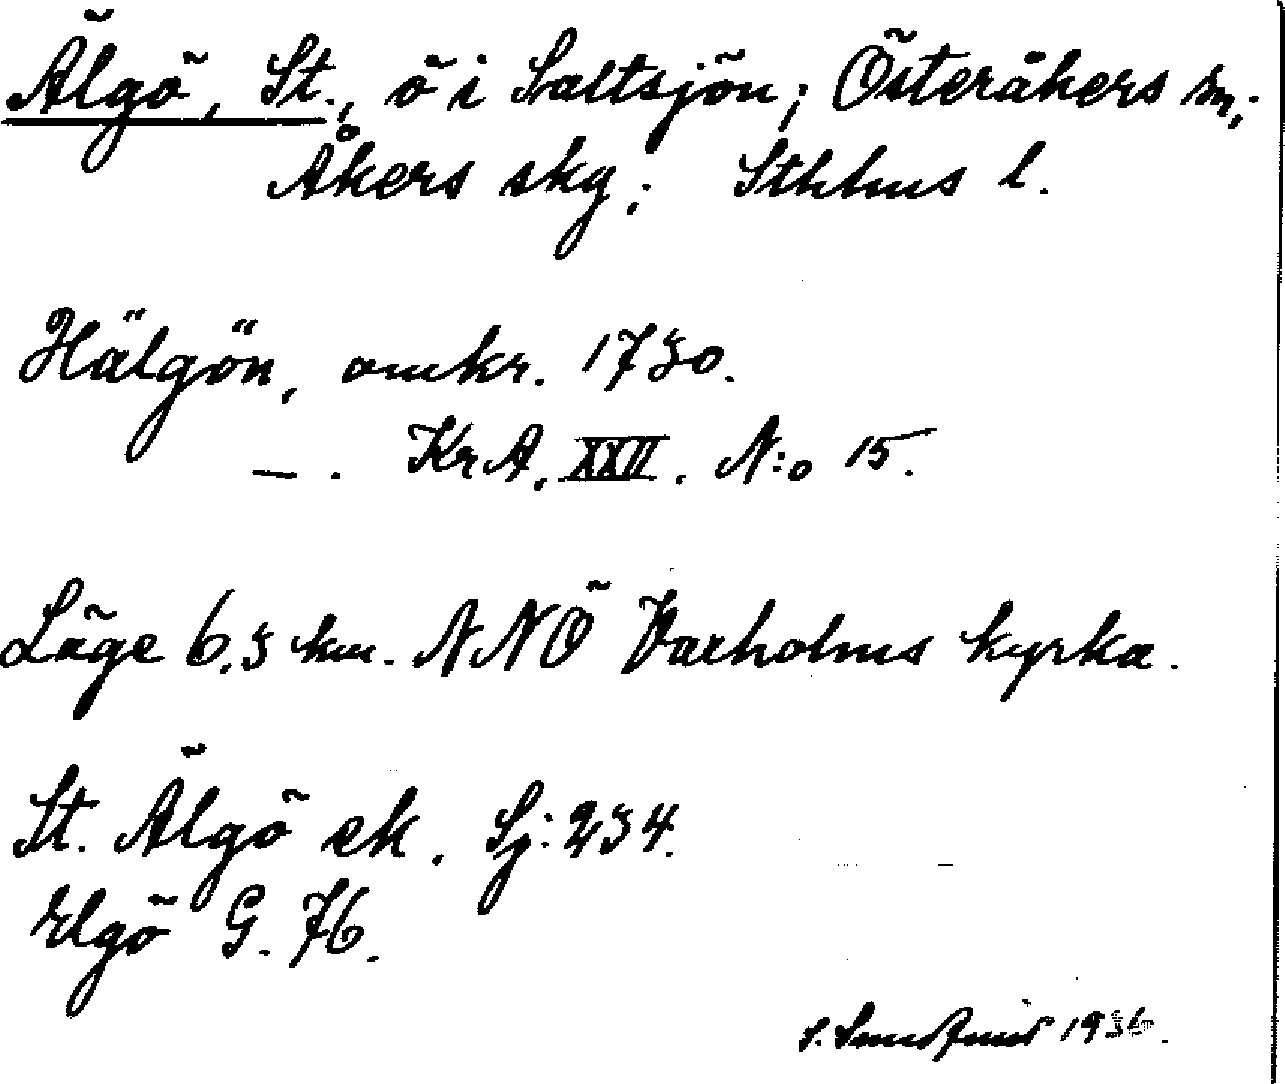 Älgö, St., ö i Saltsjön; Österåkers sn;
Åkers skg; Sthlms l.
Hälgön, omkr. 1730.
— . KrA. XXII. N:o 15.
Läge 6,3 km. NNÖ Vaxholms kyrka.
St. Älgö ek. Sj: 234.
Elgö G. 76.
S. Sundqvist 1936.